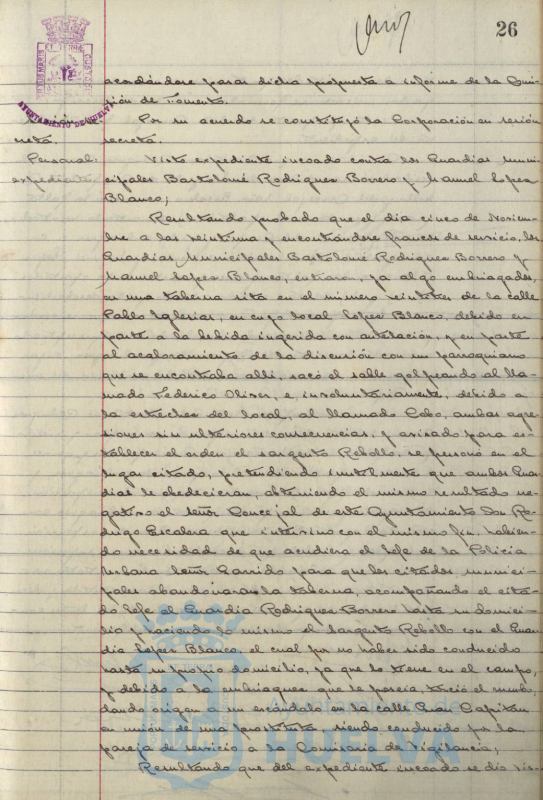 26
AYUNTAMIENTO DE HUELVA
acordándose pasar dicha propuesta a informe de la Comi-
sión de Fomento.
Por su acuerdo se constituyó la Corporación en sesión
secreta.
Personal:
expediente
Visto expediente incoado contra los Guardias Muni-
cipales Bartolomé Rodriguez Borrero y Manuel Lopez
Blanco;
Resultando probado que el dia cinco de Noviem-
bre a las veintiuna y encontrándose francos de servicio, los
Guardias Municipales Bartolomé Rodriguez Borrero y
Manuel Lopez Blanco, entraron, ya algo embriagados,
en una taberna sita en el número veintitres de la calle
Pablo Iglesias, en cuyo local Lopez Blanco, debido en
parte a la bebida ingerida con antelación, y en parte
al acaloramiento de la discusión con un parroquiano
que se encontraba alli, sacó el sable golpeando al lla-
mado Federico Oliver, e, involuntariamente, debido a
la estrechez del local, al llamado Cobo, ambas agre-
siones sin ulteriores consecuencias, y avisado para es-
tablecer el orden el sargento Rebollo, se personó en el
lugar citado, pretendiendo inutilmente que ambos Guar-
dias le obedecieran, obteniendo el mismo resultado ne-
gativo el Señor Concejal de este Ayuntamiento Don Ro-
drigo Escalera que intervino con el mismo fin, habien-
do necesidad de que acudiera el Jefe de la Policia
Urbana Señor Garrido para que los citados munici-
pales abandonaran la taberna, acompañando el cita-
do Jefe al Guardia Rodriguez Borrero hasta su domici-
lio y haciendo lo mismo el Sargento Rebollo con el Guar-
dia Lopez Blanco, el cual por no haber sido conducido
hasta su propio domicilio, ya que lo tiene en el campo,
y debido a la embriaguez que le poseia, torció el rumbo,
dando origen a un escándolo en la calle Gran Capitan
en unión de una prostituta, siendo conducido por la
pareja de servicio a la Comisaria de Vigilancia;
HUELVA
Resultando que del expediente incoado se dió vis-